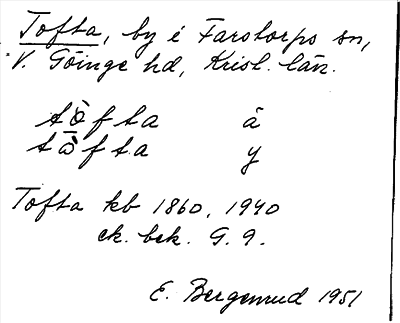 Tofta, by i Farstorps sn,
V. Göinge hd, Krist. län.
tòfta ä
tā̀fta y
Tofta kb 1860, 1940
ek. bek. G. 9.
E. Bergemud 1951